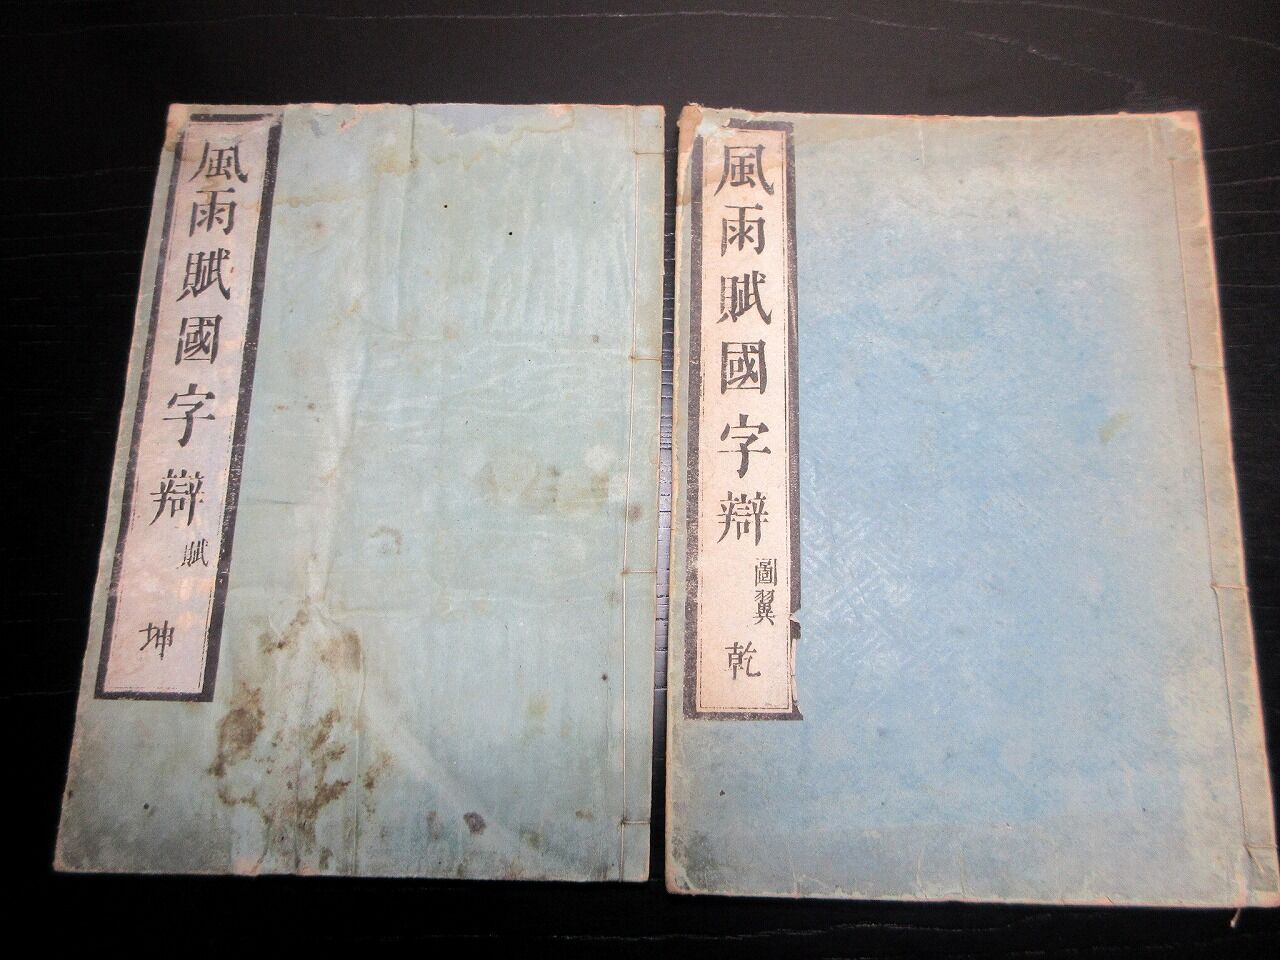 風雨賦國字辯
圖翼
乾
風雨賦國字辯
賦
坤